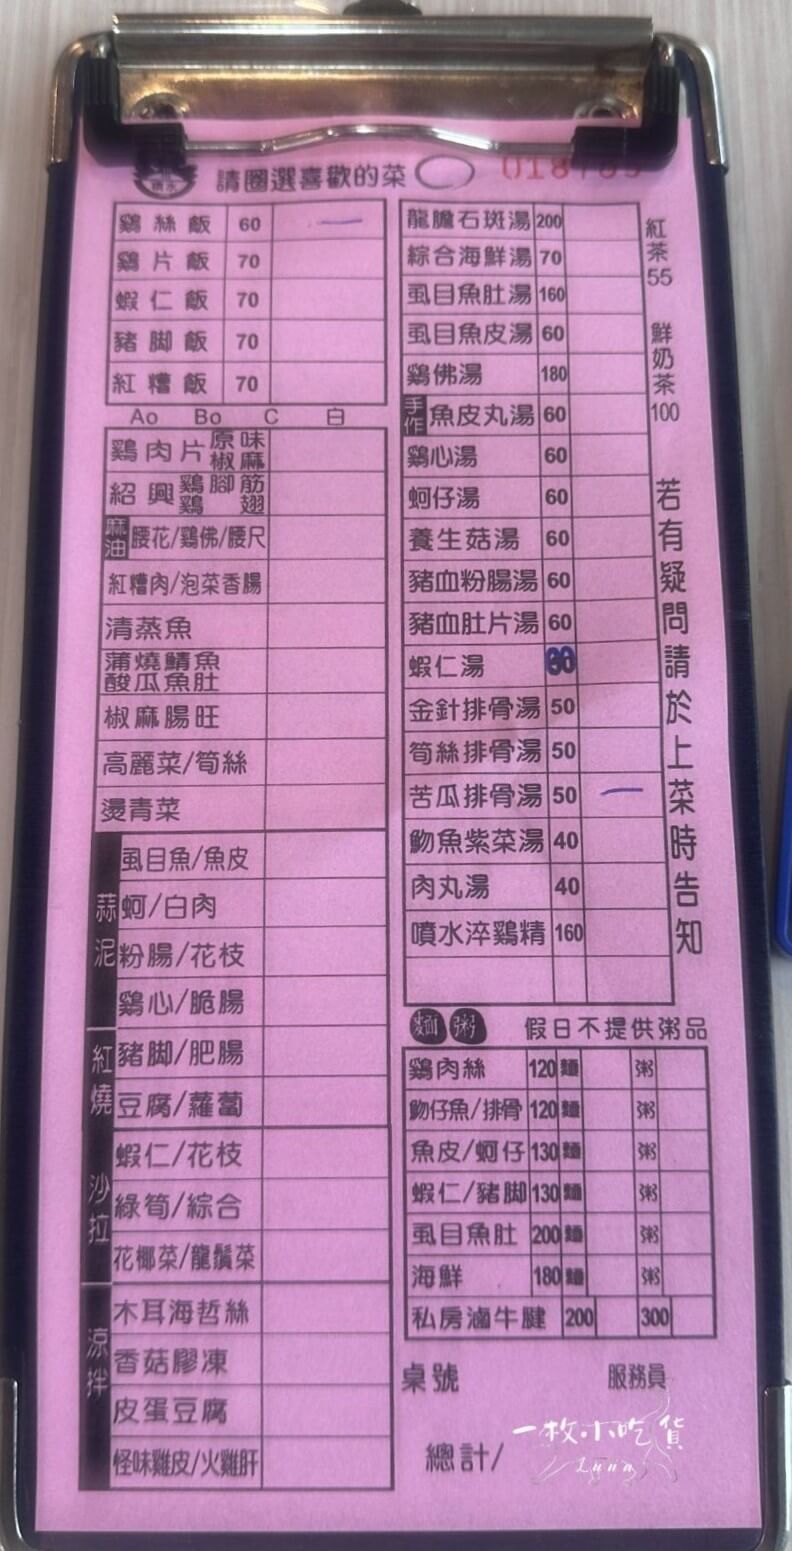 噴水
請圈選喜歡的菜
鷄絲飯 60 一
鷄片飯 70
蝦仁飯 70
豬脚飯 70
紅糟飯 70
Ao Bo C 白
鷄肉片 原味 椒麻
紹興 鷄脚筋 鷄翅
麻油 腰花/鷄佛/腰尺
紅糟肉/泡菜香腸
清蒸魚
蒲燒鯖魚
酸瓜魚肚
椒麻腸旺
高麗菜/筍絲
燙青菜
蒜泥
虱目魚/魚皮
蚵/白肉
粉腸/花枝
鷄心/脆腸
紅燒
豬脚/肥腸
豆腐/蘿蔔
沙拉
蝦仁/花枝
綠筍/綜合
花椰菜/龍鬚菜
涼拌
木耳海哲絲
香菇膠凍
皮蛋豆腐
怪味雞皮/火雞肝
龍膽石斑湯 200
綜合海鮮湯 70
虱目魚肚湯 160
虱目魚皮湯 60
鷄佛湯 180
手作 魚皮丸湯 60
鷄心湯 60
蚵仔湯 60
養生菇湯 60
豬血粉腸湯 60
豬血肚片湯 60
蝦仁湯
金針排骨湯 50
筍絲排骨湯 50
苦瓜排骨湯 50 一
魩魚紫菜湯 40
肉丸湯 40
噴水淬鷄精 160
紅茶 55
鮮奶茶 100
若有疑問請於上菜時告知
麵 粥 假日不提供粥品
鷄肉絲 120 麵 粥
魩仔魚/排骨 120 麵 粥
魚皮/蚵仔 130 麵 粥
蝦仁/豬脚 130 麵 粥
虱目魚肚 200 麵 粥
海鮮 180 麵 粥
私房滷牛腱 200 300
桌號 服務員
總計/
一枚小吃貨
Luna